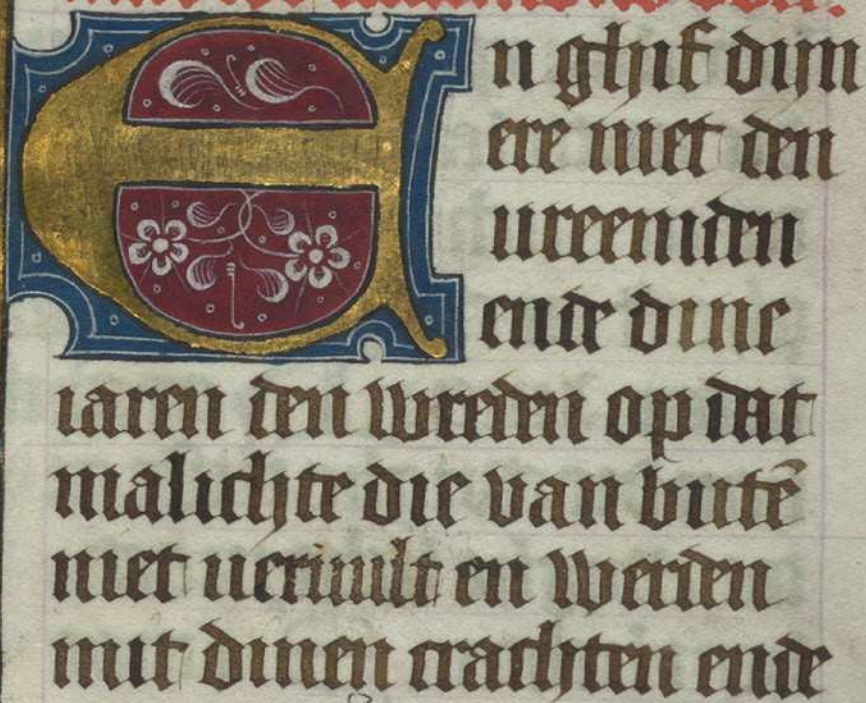 En ghif dijn
ere niet den
vreemden
ende dine
iaren den wreden op dat
malichte die van butē
niet veruult en werden
mit dinen crachten ende